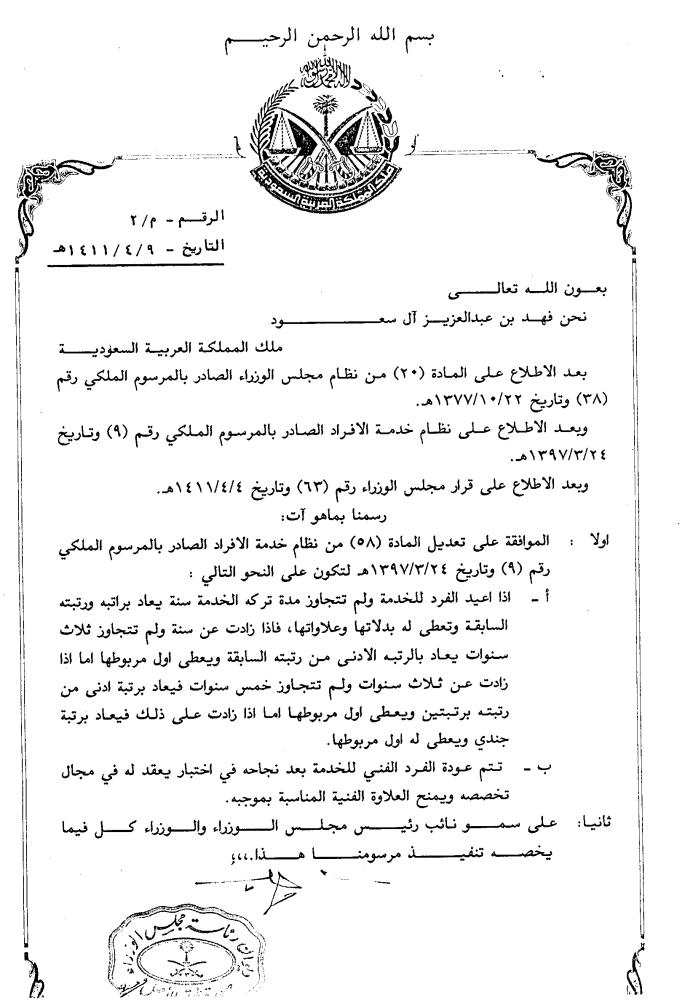 بسم الله الرحمن الرحيم
لا إله إلا الله محمد رسول الله
المملكة العربية السعودية
الرقم - م/٢
التاريخ - ١٤١١/٤/٩هـ
بعون الله تعالى
نحن فهد بن عبدالعزيز آل سعود
ملك المملكة العربية السعودية
بعد الاطلاع على المادة (٢٠) من نظام مجلس الوزراء الصادر بالمرسوم الملكي رقم
(٣٨) وتاريخ ١٣٧٧/١٠/٢٢هـ.
وبعد الاطلاع على نظام خدمة الافراد الصادر بالمرسوم الملكي رقم (٩) وتاريخ
١٣٩٧/٣/٢٤هـ.
وبعد الاطلاع على قرار مجلس الوزراء رقم (٦٣) وتاريخ ١٤١١/٤/٤هـ.
رسمنا بماهو آت:
اولا : الموافقة على تعديل المادة (٥٨) من نظام خدمة الافراد الصادر بالمرسوم الملكي
رقم (٩) وتاريخ ١٣٩٧/٣/٢٤هـ لتكون على النحو التالي :
أ - اذا اعيد الفرد للخدمة ولم تتجاوز مدة تركه الخدمة سنة يعاد براتبه ورتبته
السابقة وتعطى له بدلاتها وعلاواتها، فاذا زادت عن سنة ولم تتجاوز ثلاث
سنوات يعاد بالرتبه الادنى من رتبته السابقة ويعطى اول مربوطها اما اذا
زادت عن ثلاث سنوات ولم تتجاوز خمس سنوات فيعاد برتبة ادنى من
رتبته برتبتين ويعطى اول مربوطها اما اذا زادت على ذلك فيعاد برتبة
جندي ويعطى له اول مربوطها.
ب - تتم عودة الفرد الفني للخدمة بعد نجاحه في اختبار يعقد له في مجال
تخصصه ويمنح العلاوة الفنية المناسبة بموجبه.
ثانيا: على سمو نائب رئيس مجلس الوزراء والوزراء كل فيما
يخصه تنفيذ مرسومنا هذا،،،
ديوان رئاسة مجلس الوزراء